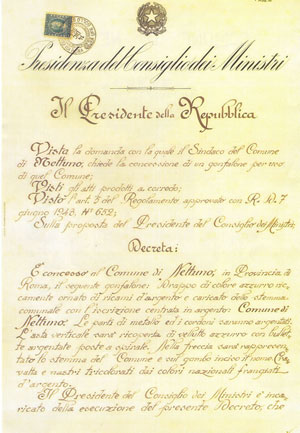 Presidenza del Consiglio dei Ministri
Il Presidente della Repubblica
Vista la domanda con la quale il Sindaco del Comune
di Nettuno, chiede la concessione di un gonfalone per uso
di quel Comune;
Visti gli atti prodotti a corredo;
Visto l'art. 5 del Regolamento approvato con R. D. 7
giugno 1943, N° 652;
Sulla proposta del Presidente del Consiglio dei Ministri;
Decreta:
È concesso al Comune di Nettuno, in Provincia di
Roma, il seguente gonfalone: Drappo di colore azzurro ric-
camente ornato di ricami d'argento e caricato dello stemma
comunale con l'iscrizione centrata in argento: Comune di
Nettuno. Le parti di metallo ed i cordoni saranno argentati.
L'asta verticale sarà ricoperta di velluto azzurro con bullet-
te argentate poste a spirale. Nella freccia sarà rappresen-
tato lo stemma del Comune e sul gambo inciso il nome. Cra-
vatta e nastri tricolorati dai colori nazionali frangiati
d'argento.
Il Presidente del Consiglio dei Ministri è inca-
ricato della esecuzione del presente Decreto, che